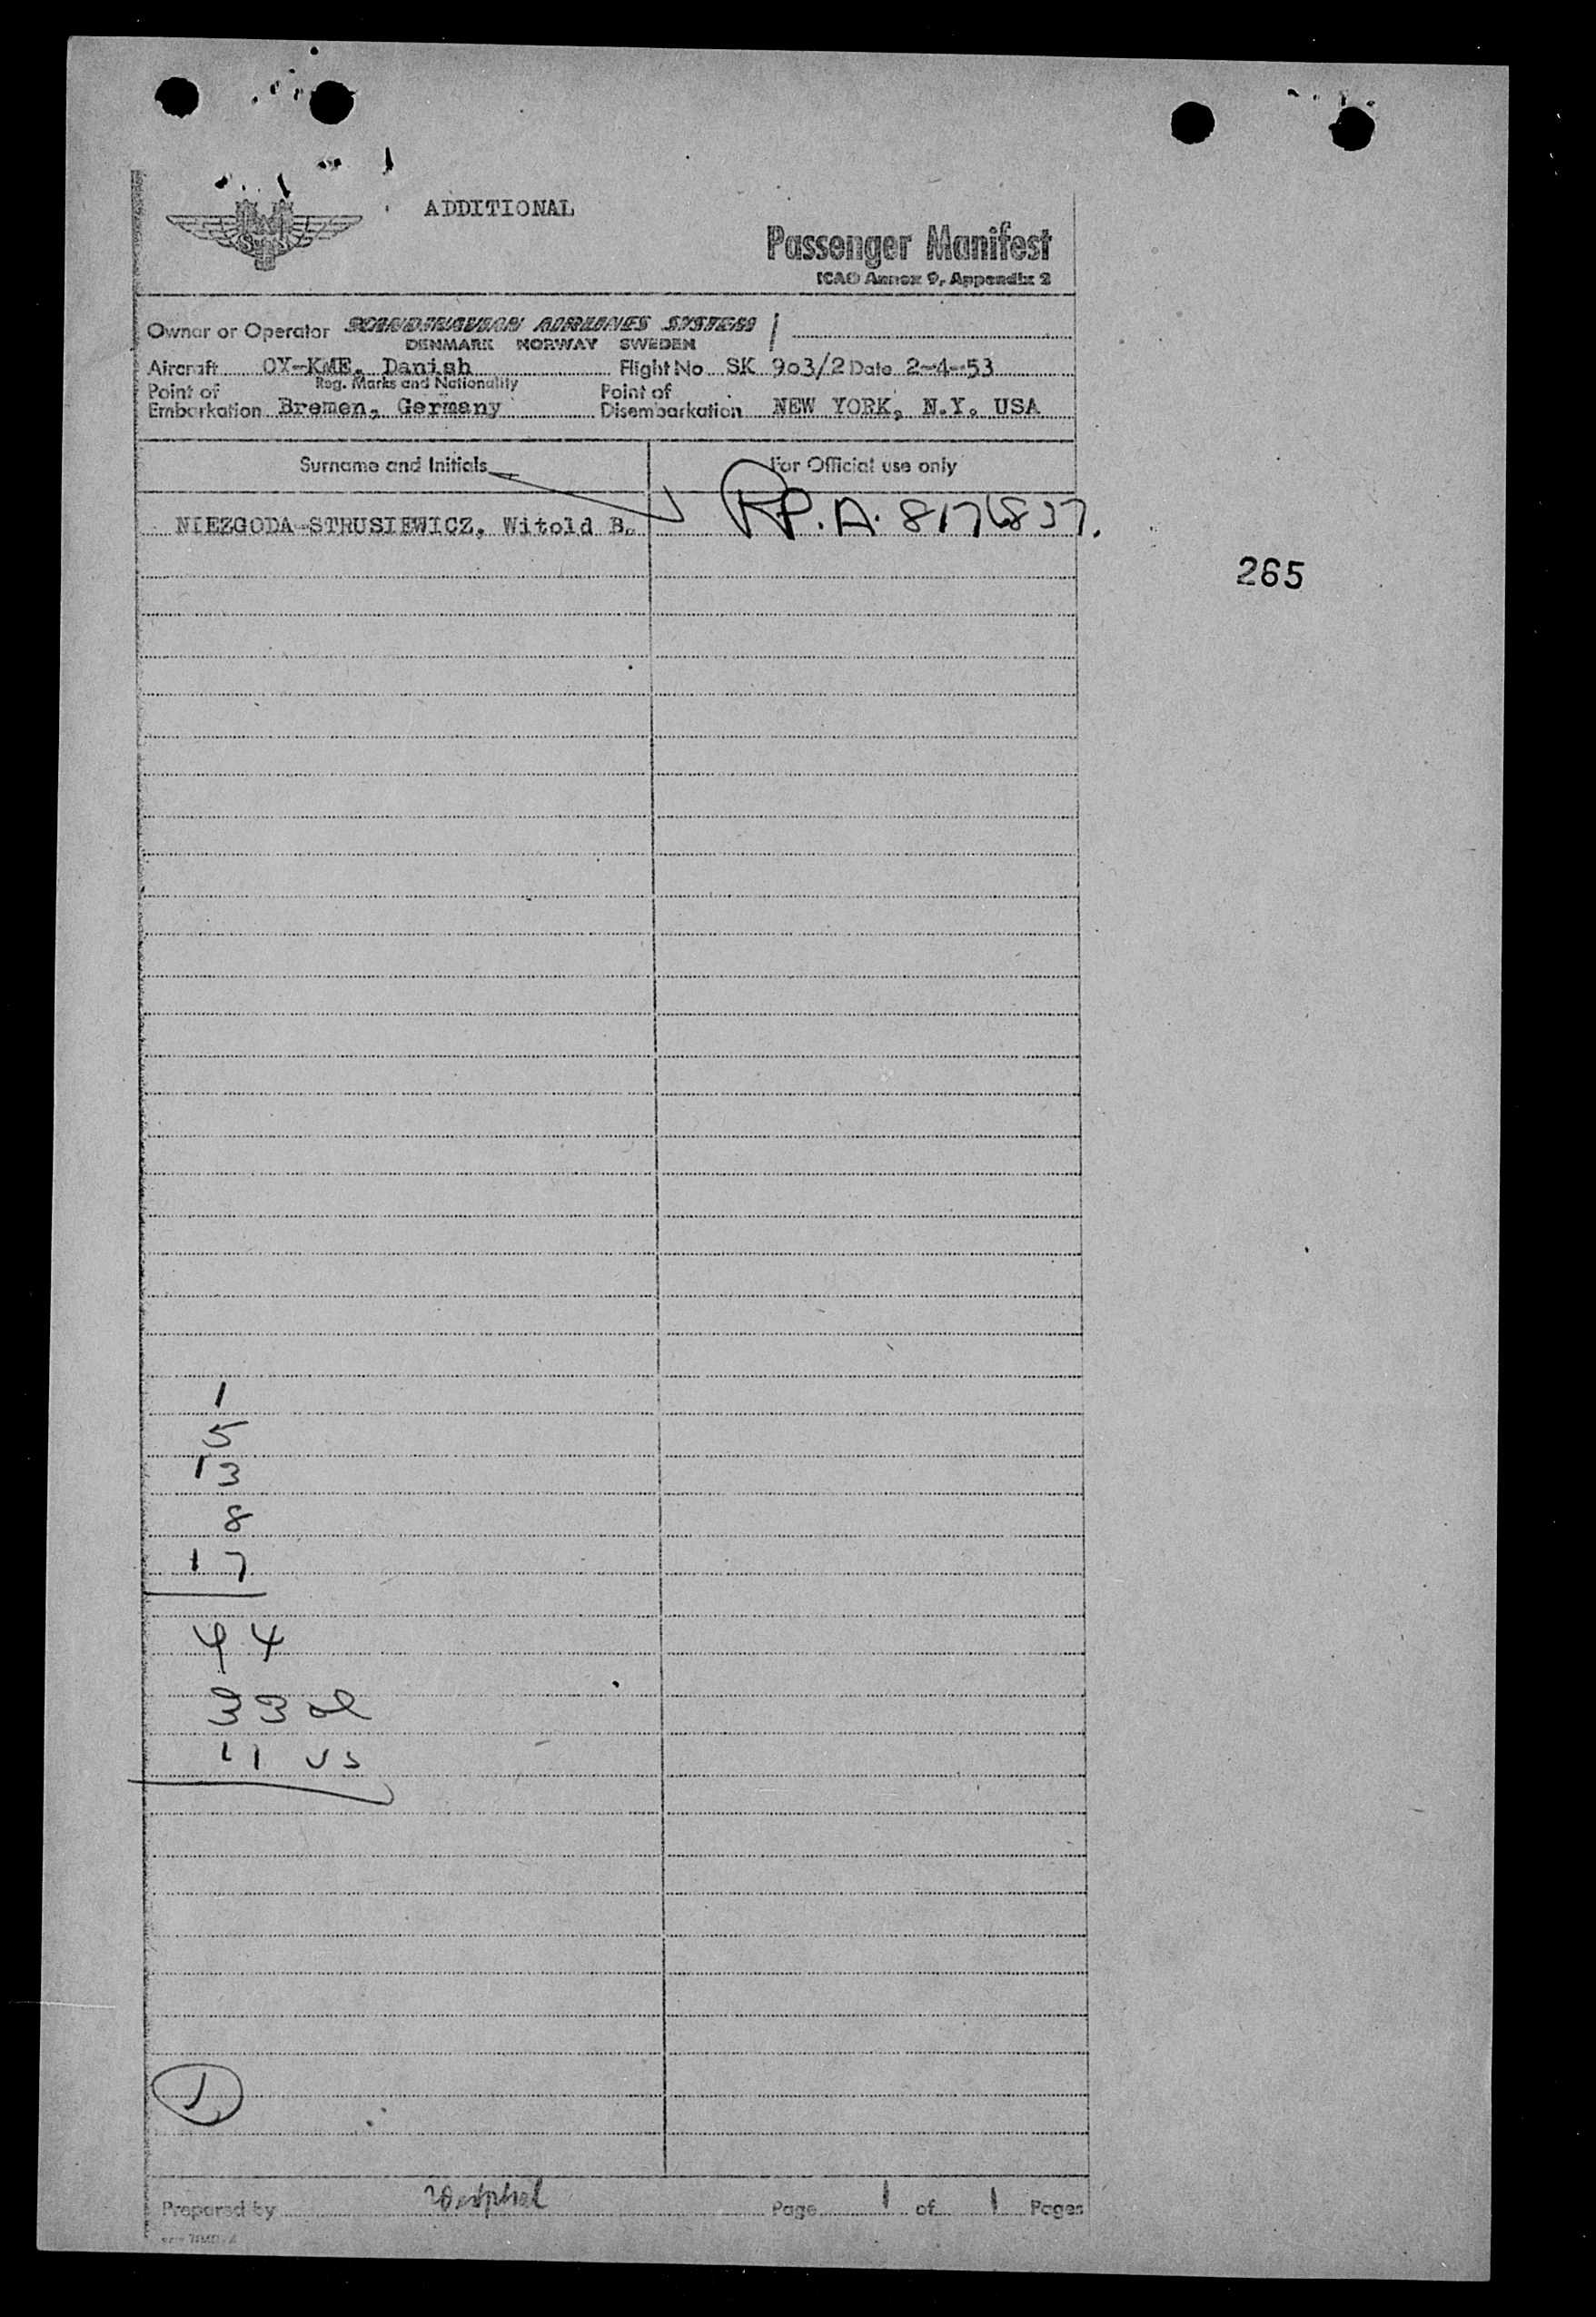 ADDITIONAL
SAS
Passenger Manifest
ICAO Annex 9, Appendix 2
Owner or Operator SCANDINAVIAN AIRLINES SYSTEM
DENMARK NORWAY SWEDEN
Aircraft OY-KME, Danish Flight No SK 903/2 Date 2-4-53
Reg. Marks and Nationality
Point of Embarkation Bremen, Germany Point of Disembarkation NEW YORK, N.Y. USA
Surname and Initials For Official use only
NIEZGODA-STRUSIEWICZ, Witold B. P.A. 8176837.
265
1
5
13
8
17
44
33 al
11 US
1
Prepared by Westphal Page 1 of 1 Pages